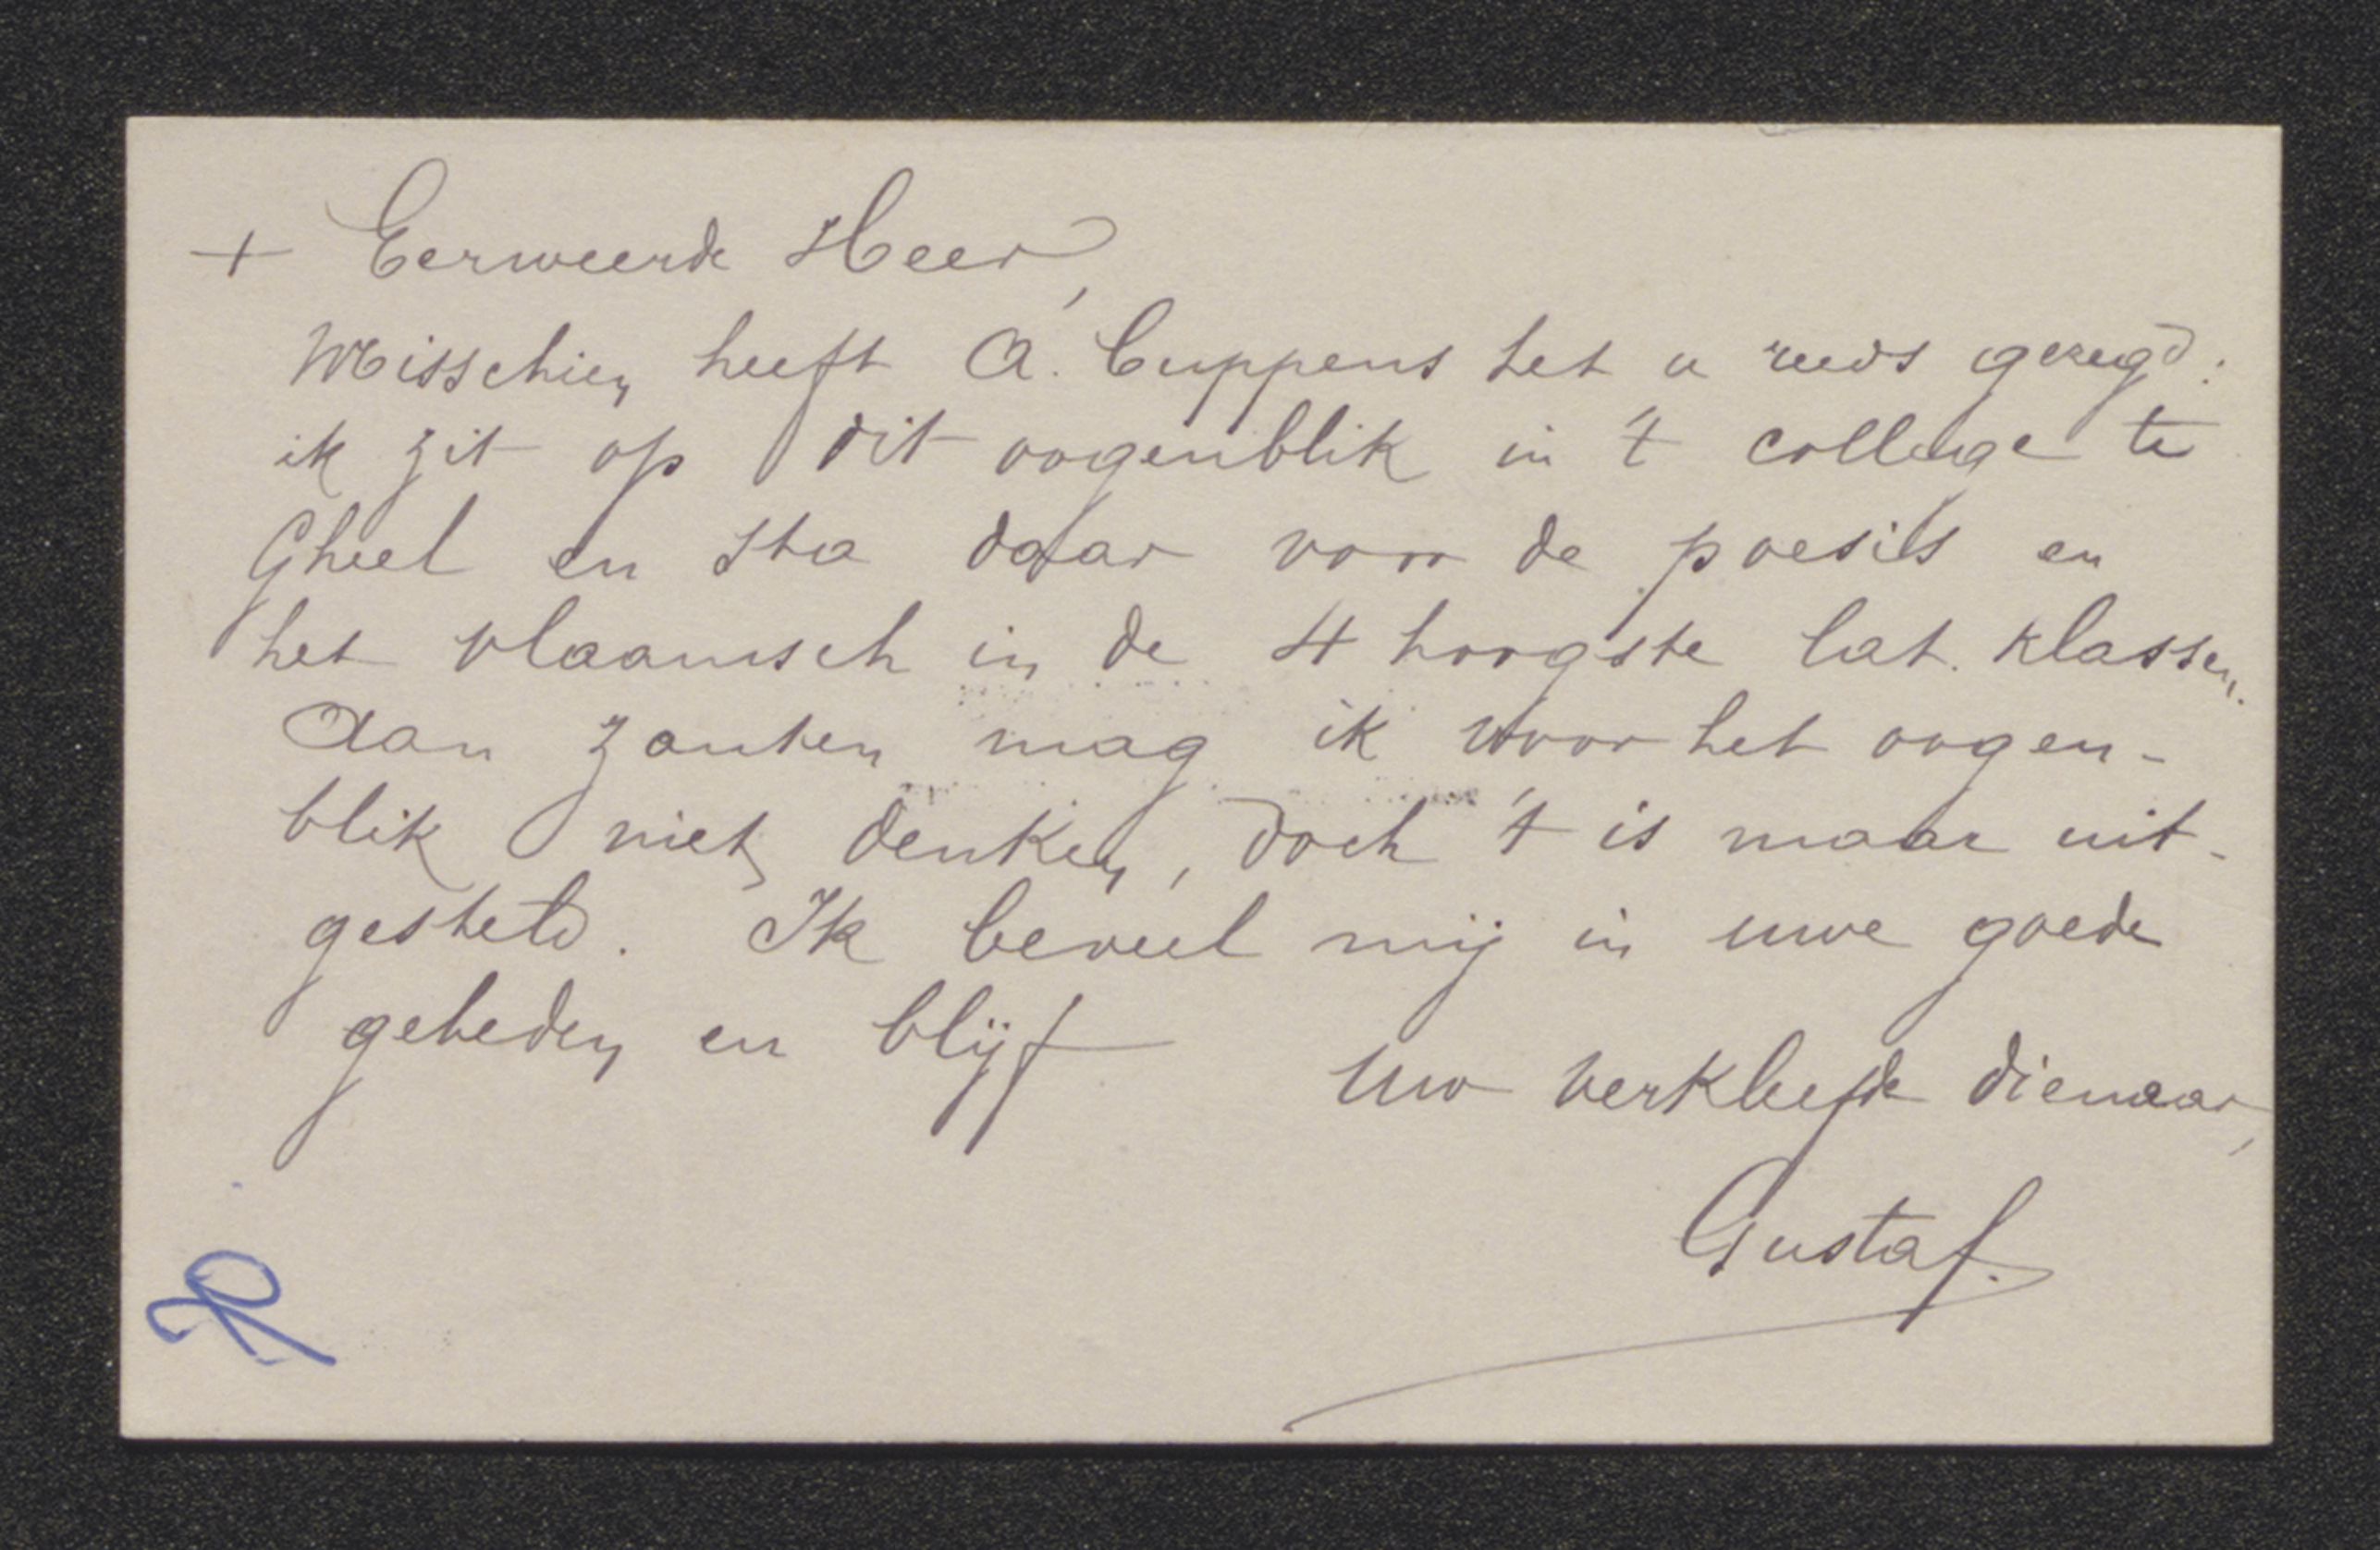 + Eerweerde Heer,
Misschien heeft A. Cuppens het u reeds gezegd:
ik zit op dit oogenblik in 't college te
Gheel en sta daar voor de poesis en
het vlaamsch in de 4 hoogste lat. klassen.
Aan zanten mag ik voor het oogen-
blik niet denken, doch 't is maar uit-
gesteld. Ik beveel mij in uwe goede
gebeden en blijf
Uw verkleefde dienaar,
Gustaf.